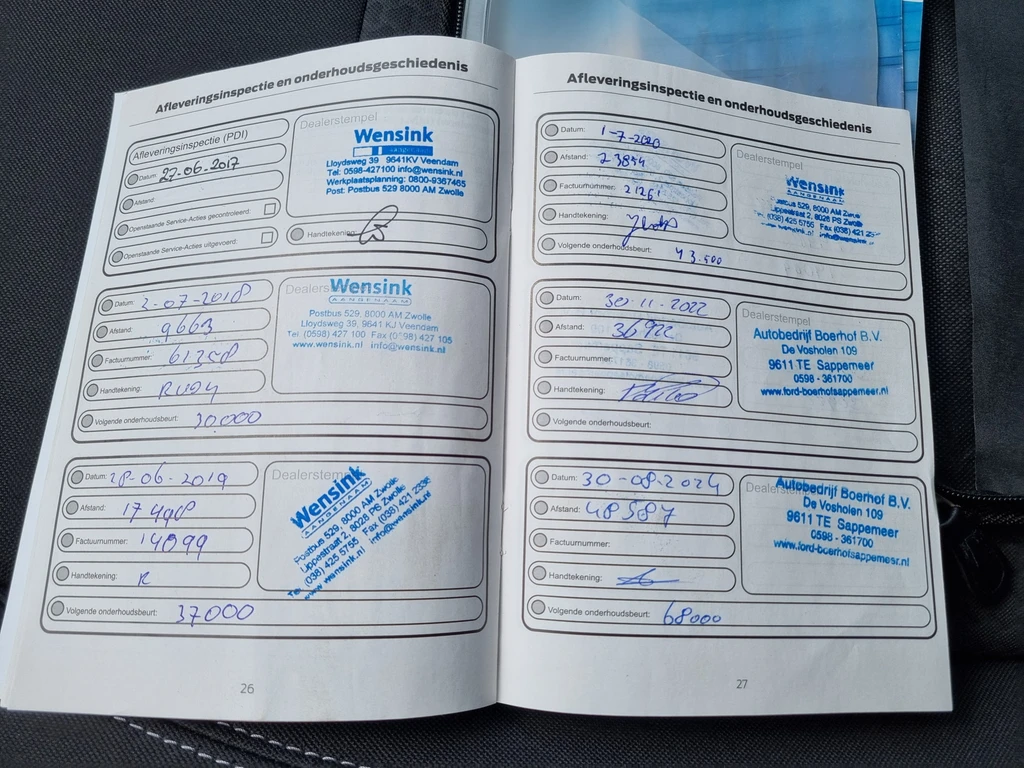 Afleveringsinspectie en onderhoudsgeschiedenis
Afleveringsinspectie (PDI)
Datum: 27-06-2017
Afstand:
Openstaande Service-Acties gecontroleerd:
Openstaande Service-Acties uitgevoerd:
Dealerstempel
Wensink
Lloydsweg 39 9641KV Veendam
Tel: 0598-427100 info@wensink.nl
Werkplaatsplanning: 0800-9367465
Post: Postbus 529 8000 AM Zwolle
Handtekening:
Datum: 2-07-2018
Afstand: 9663
Factuurnummer: 61358
Handtekening: RUDY
Volgende onderhoudsbeurt: 30000
Dealerstempel
Wensink
AANGENAAM
Postbus 529, 8000 AM Zwolle
Lloydsweg 39, 9641 KJ Veendam
Tel. (0598) 427 100 Fax (0598) 427 105
www.wensink.nl info@wensink.nl
Datum: 28-06-2019
Afstand: 17498
Factuurnummer: 14099
Handtekening: R
Volgende onderhoudsbeurt: 37000
Dealerstempel
Wensink
AANGENAAM
Postbus 529, 8000 AM Zwolle
Lippestraat 2, 8028 PS Zwolle
Tel. (038) 425 5755 Fax (038) 421 2338
www.wensink.nl info@wensink.nl
26
Afleveringsinspectie en onderhoudsgeschiedenis
Datum: 1-7-2020
Afstand: 23854
Factuurnummer: 21261
Handtekening:
Volgende onderhoudsbeurt: 43.500
Dealerstempel
Wensink
AANGENAAM
Postbus 529, 8000 AM Zwolle
Lippestraat 2, 8028 PS Zwolle
Tel. (038) 425 5755 Fax (038) 421 23
www.wensink.nl info@wensink
Datum: 30-11-2022
Afstand: 36922
Factuurnummer:
Handtekening:
Volgende onderhoudsbeurt:
Dealerstempel
Autobedrijf Boerhof B.V.
De Vosholen 109
9611 TE Sappemeer
0598 - 361700
www.ford-boerhofsappemeer.nl
Datum: 30-08-2024
Afstand: 48587
Factuurnummer:
Handtekening:
Volgende onderhoudsbeurt: 68000
Dealerstempel
Autobedrijf Boerhof B.V.
De Vosholen 109
9611 TE Sappemeer
0598 - 361700
www.ford-boerhofsappemeer.nl
27